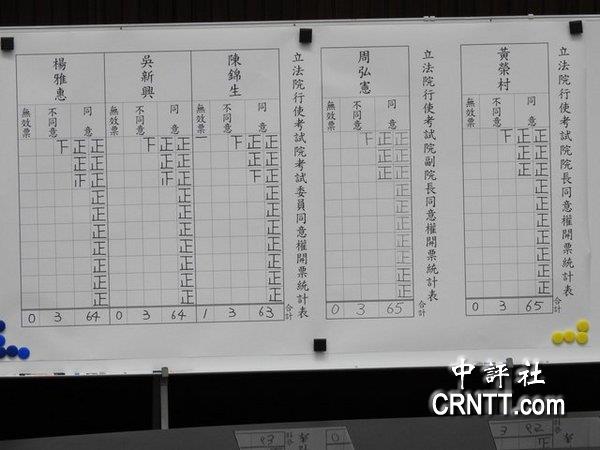 立法院行使考試院院長同意權開票統計表
黃榮村
同意
不同意
無效票
正正正正正正正正正正
正正正
下
合計
65
3
0
立法院行使考試院副院長同意權開票統計表
周弘憲
同意
不同意
無效票
正正正正正正正正正正
正正正
下
合計
65
3
0
立法院行使考試院考試委員同意權開票統計表
陳錦生
同意
不同意
無效票
正正正正正正正正正正
正正下
下
一
合計
63
3
1
吳新興
同意
不同意
無效票
正正正正正正正正正正
正正
下
64
3
0
楊雅惠
同意
不同意
無效票
正正正正正正正正正正
正正
下
64
3
0
中評社
CRNTT.com